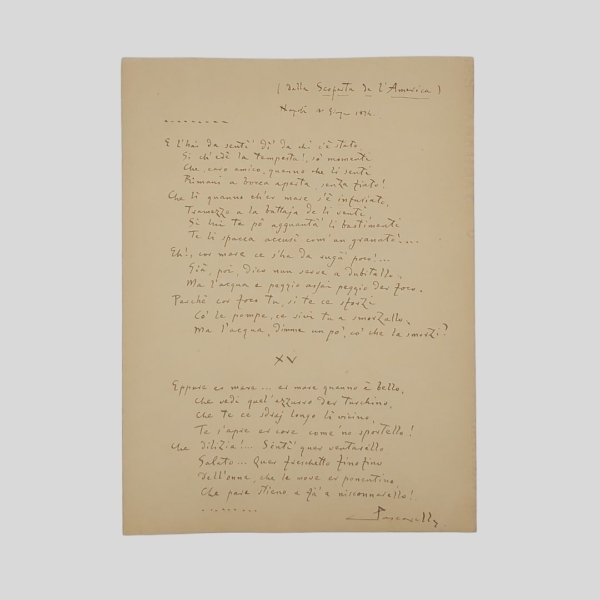 (dalla Scoperta de l'America)
Napoli
E l'hai da sentì dì da chi c'è stato
Si ch'edè la tempesta!, so' momenti
Che, caro amico, quanno che li senti
Rimani a bocca aperta, senza fiato!
Che lì quanno ch'er mare s'è infuriato,
Tramezzo a la battaja de li venti
Si lui te pô agguantà li bastimenti
Te li spacca accusì com'un granato!....
Eh!, cor mare ce s'ha da rugà poco!...
Già, poi, dico nun serve a dubitallo,
Ma l'acqua è peggio assai peggio der foco.
Perchè cor foco tu, si te ce sforzi
Co' le pompe, ce arivi tu a smorzallo,
Ma l'acqua, dimme un po', co' che la smorzi?
XV
Eppure er mare... er mare quanno è bello,
Che vedi quel'azzurro der turchino,
Che te ce sdraj longo lì vicino,
Te s'apre er core come 'no sportello!
Che dilizia!... Sentì quer ventarello
Salato... Quer freschetto fino fino
Dell'onne, che le move er ponentino
Che pare stieno a fà' a nisconnarello!
Pascarella